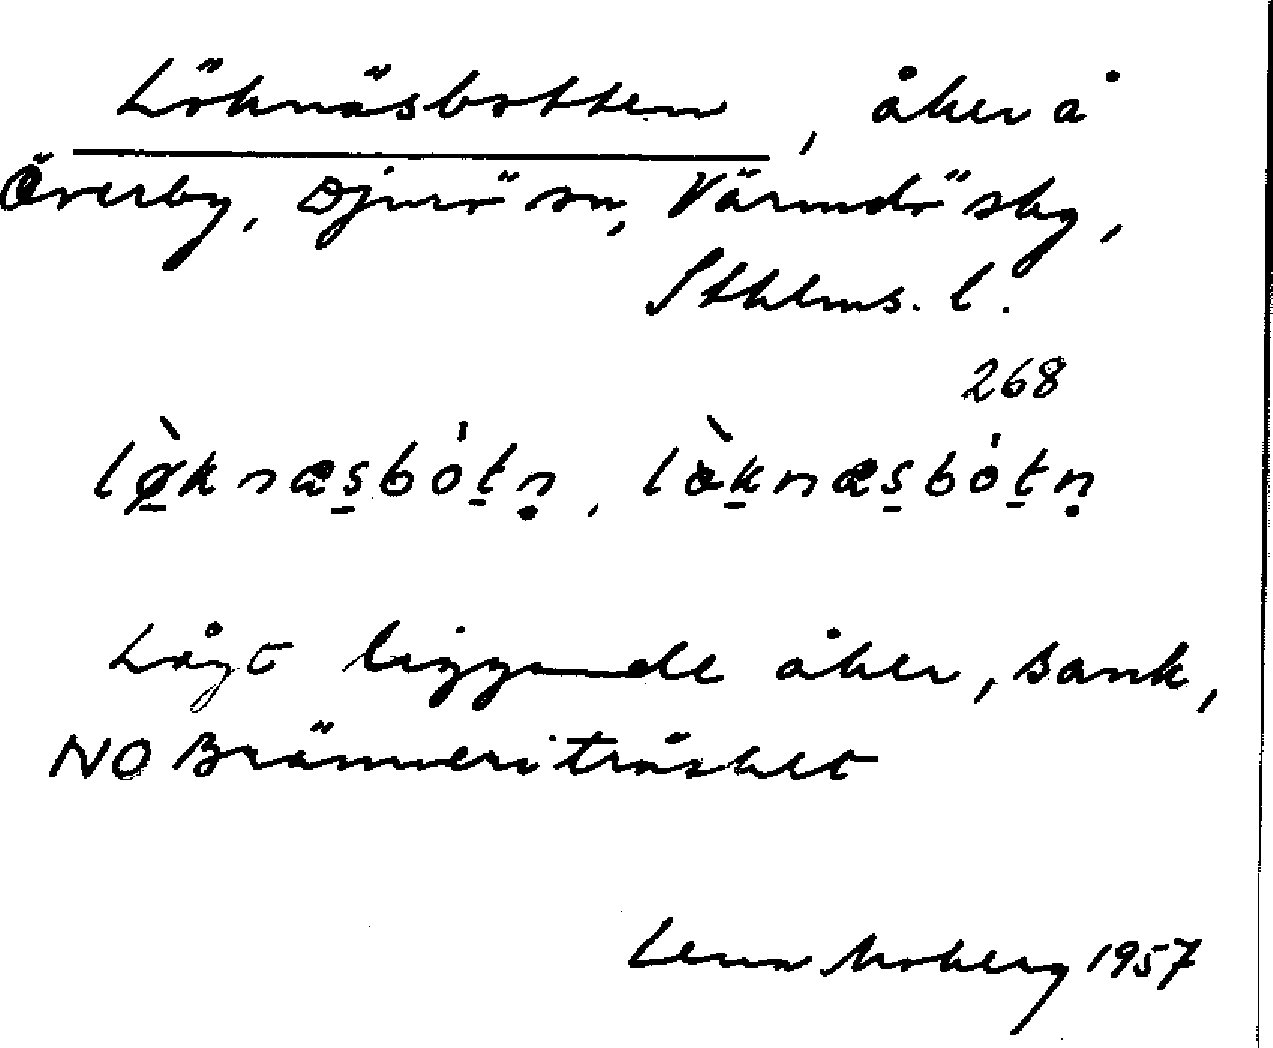 Löknäsbotten, åker å
Överby, Djurö sn, Värmdö sbg,
Sthlms. l.
268
lø̀knæsbótn̥, lœ̀knæsbótn̥
Lågt liggende åker, sank,
NO Bränneriträsket
Lena Moberg 1957